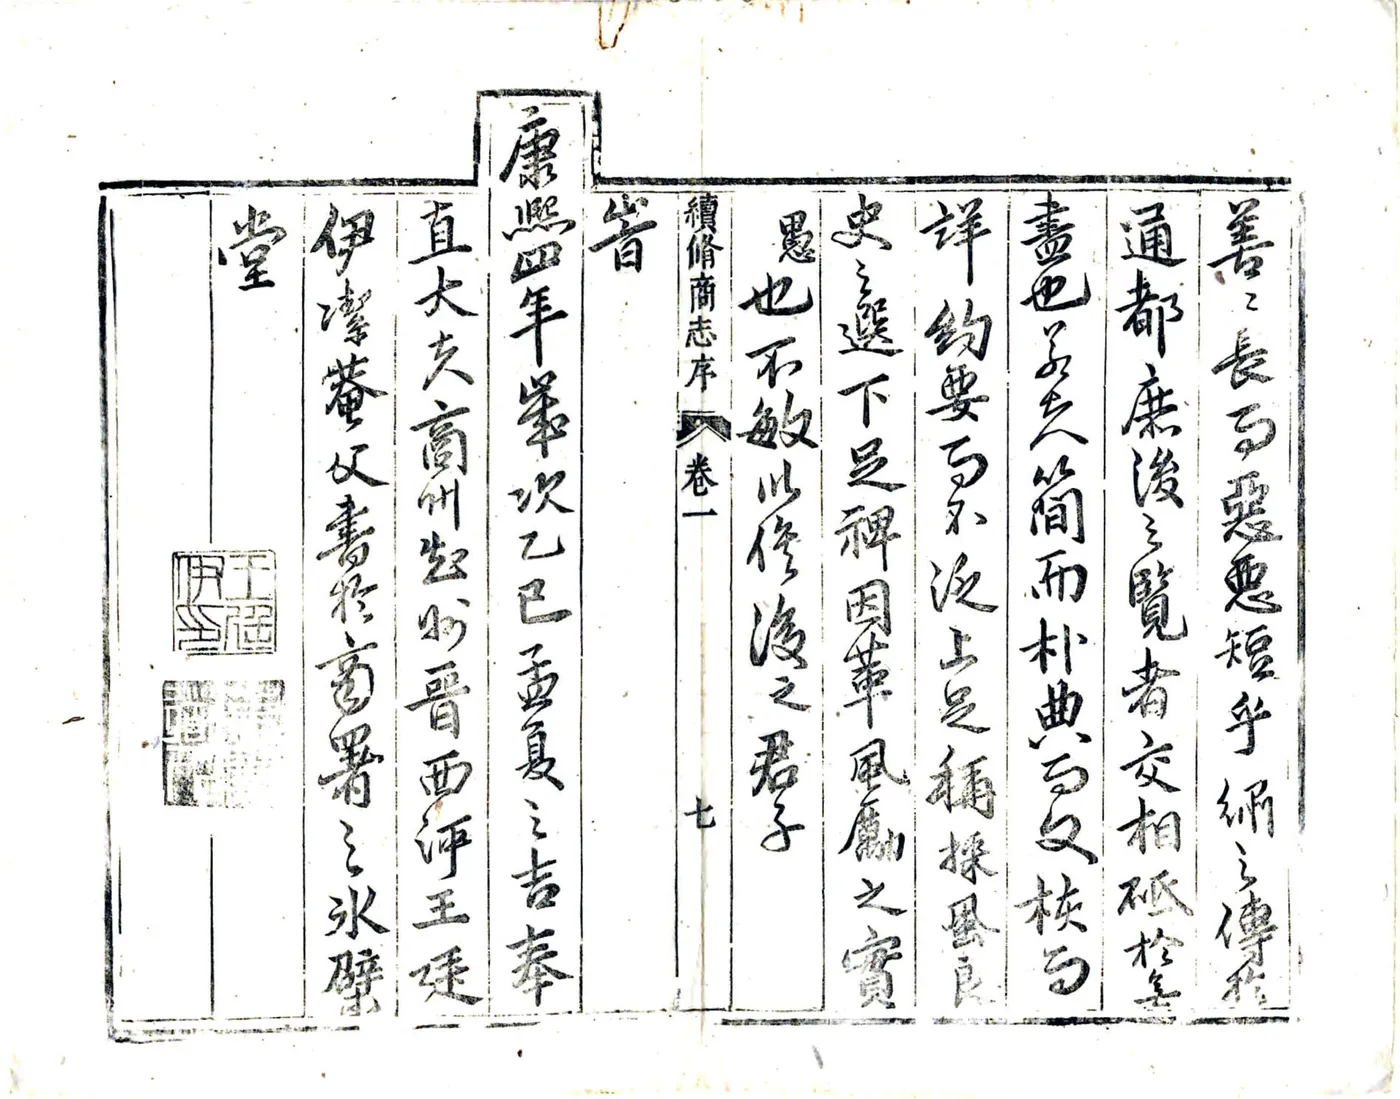 善〻長而惡惡短乎綱之傳於
通都庶後之覽者交相砥於無
盡也若夫簡而朴典而文核而
詳約要而不泛上足稱採風良
史之選下足裨因革風勵之實
愚也不敏以俟後之君子
續脩商志序
卷一
七
旹
康熙四年歲次乙巳孟夏之吉奉
直大夫商州知州晉西河王廷
伊潔菴父書於商署之氷檗
堂
王廷伊印